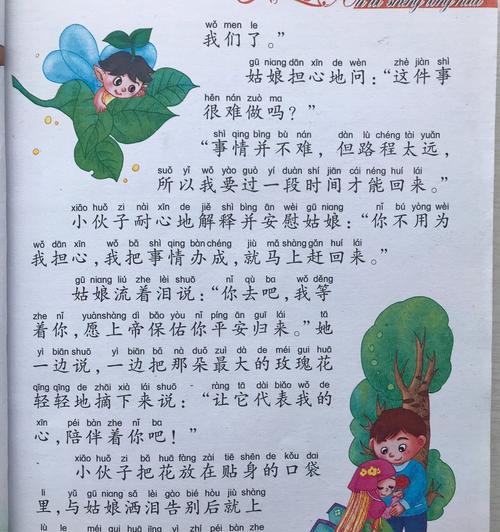 wǒ men le
我们了。”
gū niang dān xīn de wèn zhè jiàn shì
姑娘担心地问：“这件事
hěn nán zuò ma
很难做吗？”
shì qing bìng bù nán dàn lù chéng tài yuǎn
“事情并不难，但路程太远，
suǒ yǐ wǒ yào guò yí duàn shí jiān cái néng huí lái
所以我要过一段时间才能回来。”
xiǎo huǒ zi nài xīn de jiě shì bìng ān wèi gū niang nǐ bú yòng wèi
小伙子耐心地解释并安慰姑娘：“你不用为
wǒ dān xīn wǒ bǎ shì qing bàn chéng jiù mǎ shàng gǎn huí lái
我担心，我把事情办成，就马上赶回来。”
gū niang liú zhe lèi shuō nǐ qù ba wǒ děng
姑娘流着泪说：“你去吧，我等
zhe nǐ yuàn shàng dì bǎo yòu nǐ píng ān guī lái tā
着你，愿上帝保佑你平安归来。”她
yì biān shuō yì biān bǎ nà duǒ zuì dà de méi gui huā
一边说，一边把那朵最大的玫瑰花
qīng qīng de zhāi xià lái shuō ràng tā dài biǎo wǒ de
轻轻地摘下来说：“让它代表我的
xīn péi bàn zhe nǐ ba
心，陪伴着你吧！”
xiǎo huǒ zi bǎ huā fàng zài tiē shēn de kǒu dài
小伙子把花放在贴身的口袋
lǐ yǔ gū niang sǎ lèi gào bié hòu jiù shàng
里，与姑娘洒泪告别后就上
lù le méi gui huā jīn jǐn péi bàn zhe